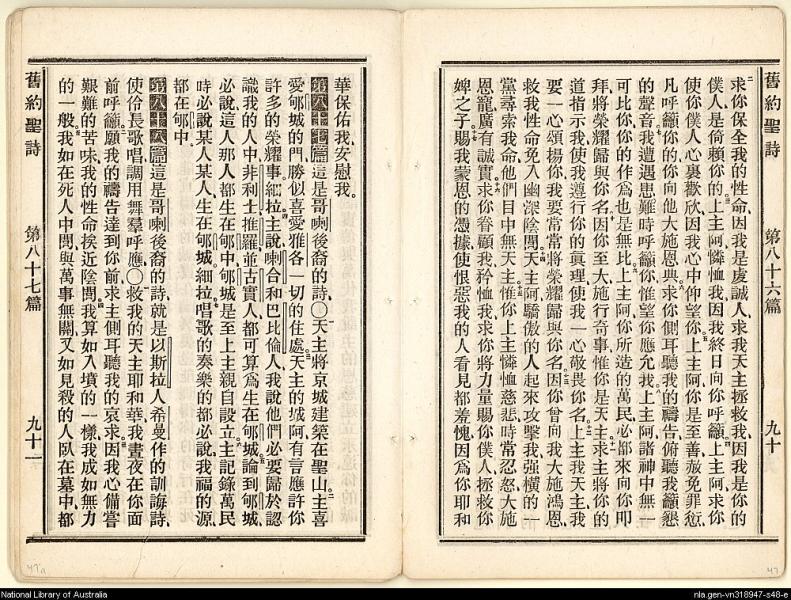 舊約聖詩 第八十六篇 九十
求你保全我的性命因我是虔誠人求我天主拯救我因我是你的
僕人是倚賴你的上主阿憐恤我因我終日向你呼籲上主阿求你
使你僕人心裏歡欣因我心中仰望你上主阿你是至善赦免罪愆
凡呼籲你的你向他大施恩典求你側耳聽我的禱告俯聽我籲懇
的聲音我遭遇患難時呼籲你惟望你應允我上主阿諸神中無一
可比你你的作為也是無比上主阿你所造的萬民必都來向你叩
拜將榮耀歸與你名因你至大施行奇事惟你是天主求主將你的
道指示我使我遵行你的真理使我一心敬畏你名上主我天主我
要一心頌揚你我要常常將榮耀歸與你名因你曾向我大施鴻恩
救我性命免入幽深陰間天主阿驕傲的人起來攻擊我強橫的一
黨尋索我命他們目中無天主惟你上主憐恤慈悲時常忍怒大施
恩寵廣有誠實求你眷顧我矜恤我求你將力量賜你僕人拯救你
婢之子賜我蒙恩的憑據使恨惡我的人看見都羞愧因為你耶和
華保佑我安慰我。
第八十七篇這是哥喇後裔的詩〇天主將京城建築在聖山主喜
愛郇城的門勝似喜愛雅各一切的住處天主的城阿有言應許你
許多的榮耀事細拉主說喇合和巴比倫人我說他們必要歸於認
識我的人中非利士推羅並古實人都可算為生在郇城論到郇城
必說這人那人都生在郇中郇城是至上主親自設立主記錄萬民
時必說某人某人生在郇城細拉唱歌的奏樂的都必說我福的源
都在郇中
第八十八篇這是哥喇後裔的詩就是以斯拉人希曼作的訓誨詩
使伶長歌唱調用舞羣呼應〇救我的天主耶和華我晝夜在你面
前呼籲願我的禱告達到你前求主側耳聽我的哀求因我心備嘗
艱難的苦味我的性命挨近陰間我算如入墳的一樣我成如無力
的一般我如在死人中間與萬事無關又如見殺的人臥在墓中都
舊約聖詩 第八十七篇 九十一
47a
47
National Library of Australia
nla.gen-vn318947-s48-e